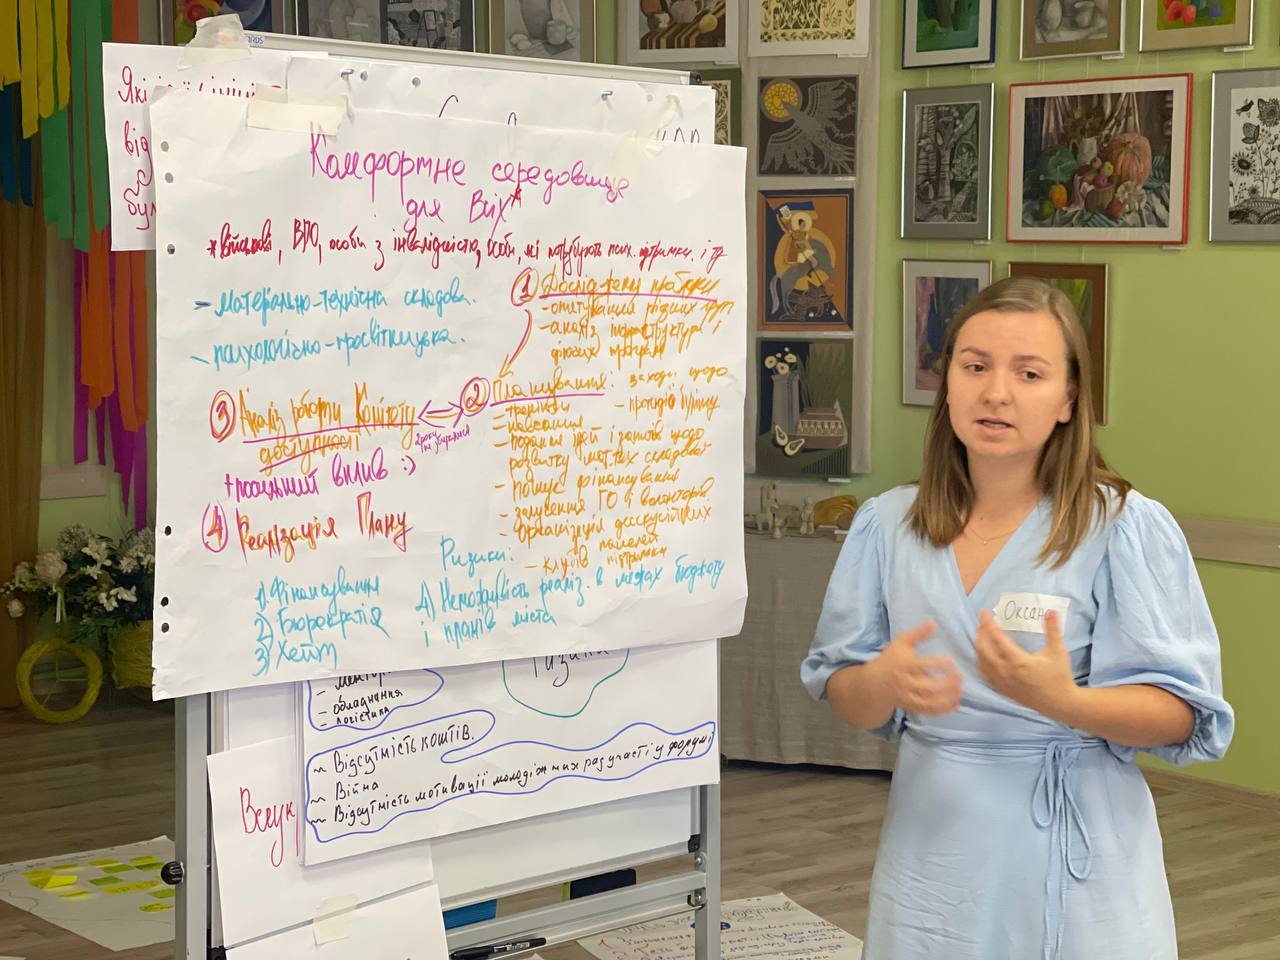 Які
від
Комфортне середовище
для Всіх*
*військові, ВПО, особи з інвалідністю, особи, які потребують псих. підтримки і тд
- матеріально-технічна складова.
- психологічно-просвітницька.
① Дослідження проблеми
- опитування різних груп
- аналіз інфраструктури і
діючих програм
② Планування: заходи щодо
- тренінги - протидія булінгу
- подання ідей і запитів щодо
розвитку мат.тех складової
- пошук фінансування
- залучення ГО і волонтерів
- організація дискусійних
панелей
- клубів підтримки
③ Аналіз роботи Комітету
доступності
2 роки не збирались
+ посильний вплив :)
④ Реалізація Плану
Ризики:
1) Фінансування
2) Бюрократія
3) Хейт
4) Неможливість реаліз. в межах бюджету
і планів міста
- обладнання
- логістика
~ Відсутність коштів.
~ Війна
~ Відсутність мотивації молодіжних рад участі у форумі
Оксана